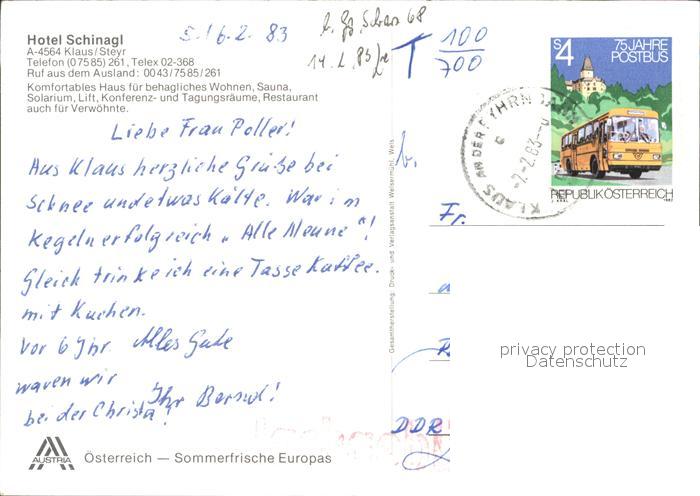 Hotel Schinagl
A-4564 Klaus/Steyr
Telefon (07585) 261, Telex 02-368
Ruf aus dem Ausland: 0043/7585/261
Komfortables Haus für behagliches Wohnen, Sauna,
Solarium, Lift, Konferenz- und Tagungsräume, Restaurant
auch für Verwöhnte.
16.2.83
T 100
700
S4
75 JAHRE
POSTBUS
REPUBLIK ÖSTERREICH
KLAUS AN DER PYHRNBAHN
Liebe Frau Poller!
Aus Klaus herzliche Grüße bei
Schnee und etwas Kälte. War im
Kegeln erfolgreich „Alle Neune"!
Gleich trinke ich eine Tasse Kaffee.
mit Kuchen.
Vor 6 Jhr. Alles Gute
waren wir
bei der Christa! Ihr
Gesamtherstellung: Druck- und Verlagsanstalt Welsermühl, Wels
Fr.
DDR
privacy protection
Datenschutz
AUSTRIA
Österreich — Sommerfrische Europas